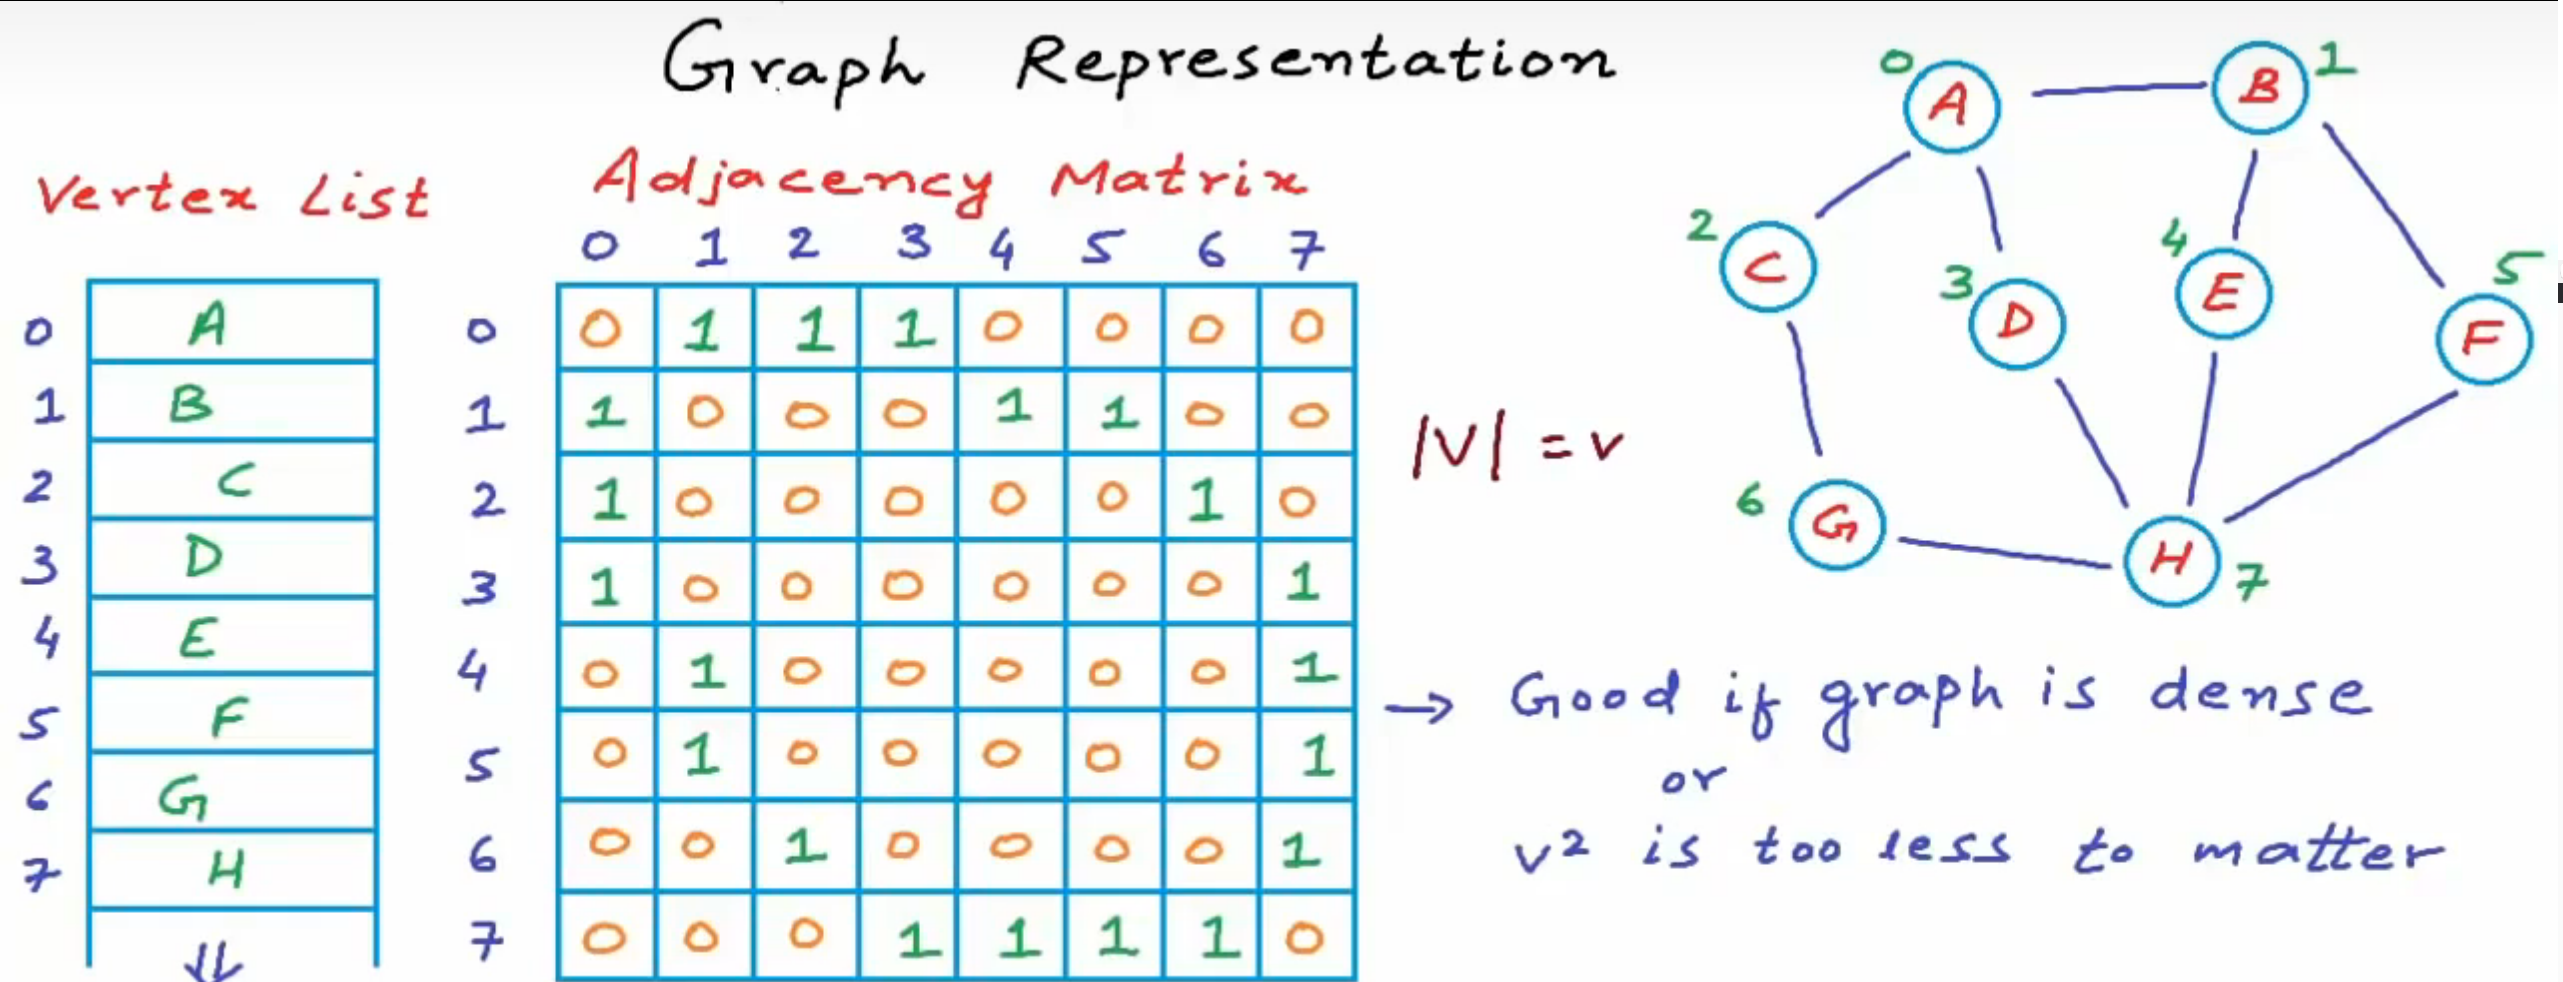 Graph Representation
Vertex List
0 A
1 B
2 C
3 D
4 E
5 F
6 G
7 H
Adjacency Matrix
0 1 2 3 4 5 6 7
0 0 1 1 1 0 0 0 0
1 1 0 0 0 1 1 0 0
2 1 0 0 0 0 0 1 0
3 1 0 0 0 0 0 0 1
4 0 1 0 0 0 0 0 1
5 0 1 0 0 0 0 0 1
6 0 0 1 0 0 0 0 1
7 0 0 0 1 1 1 1 0
|V| = v
0 A
B 1
2 C
3 D
4 E
5 F
6 G
H 7
→ Good if graph is dense
or
v² is too less to matter